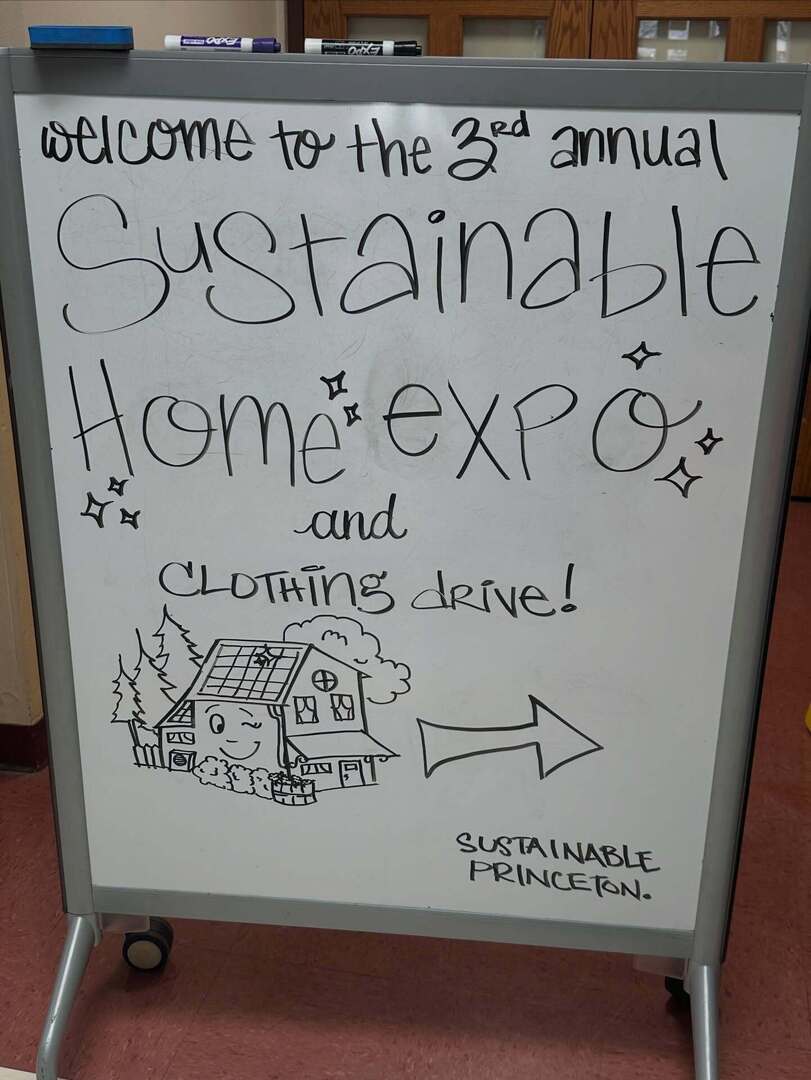 EXPO
EXPO
welcome to the 3rd annual
Sustainable
Home expo
and
CLOTHing drive!
SUSTAINABLE
PRINCETON.